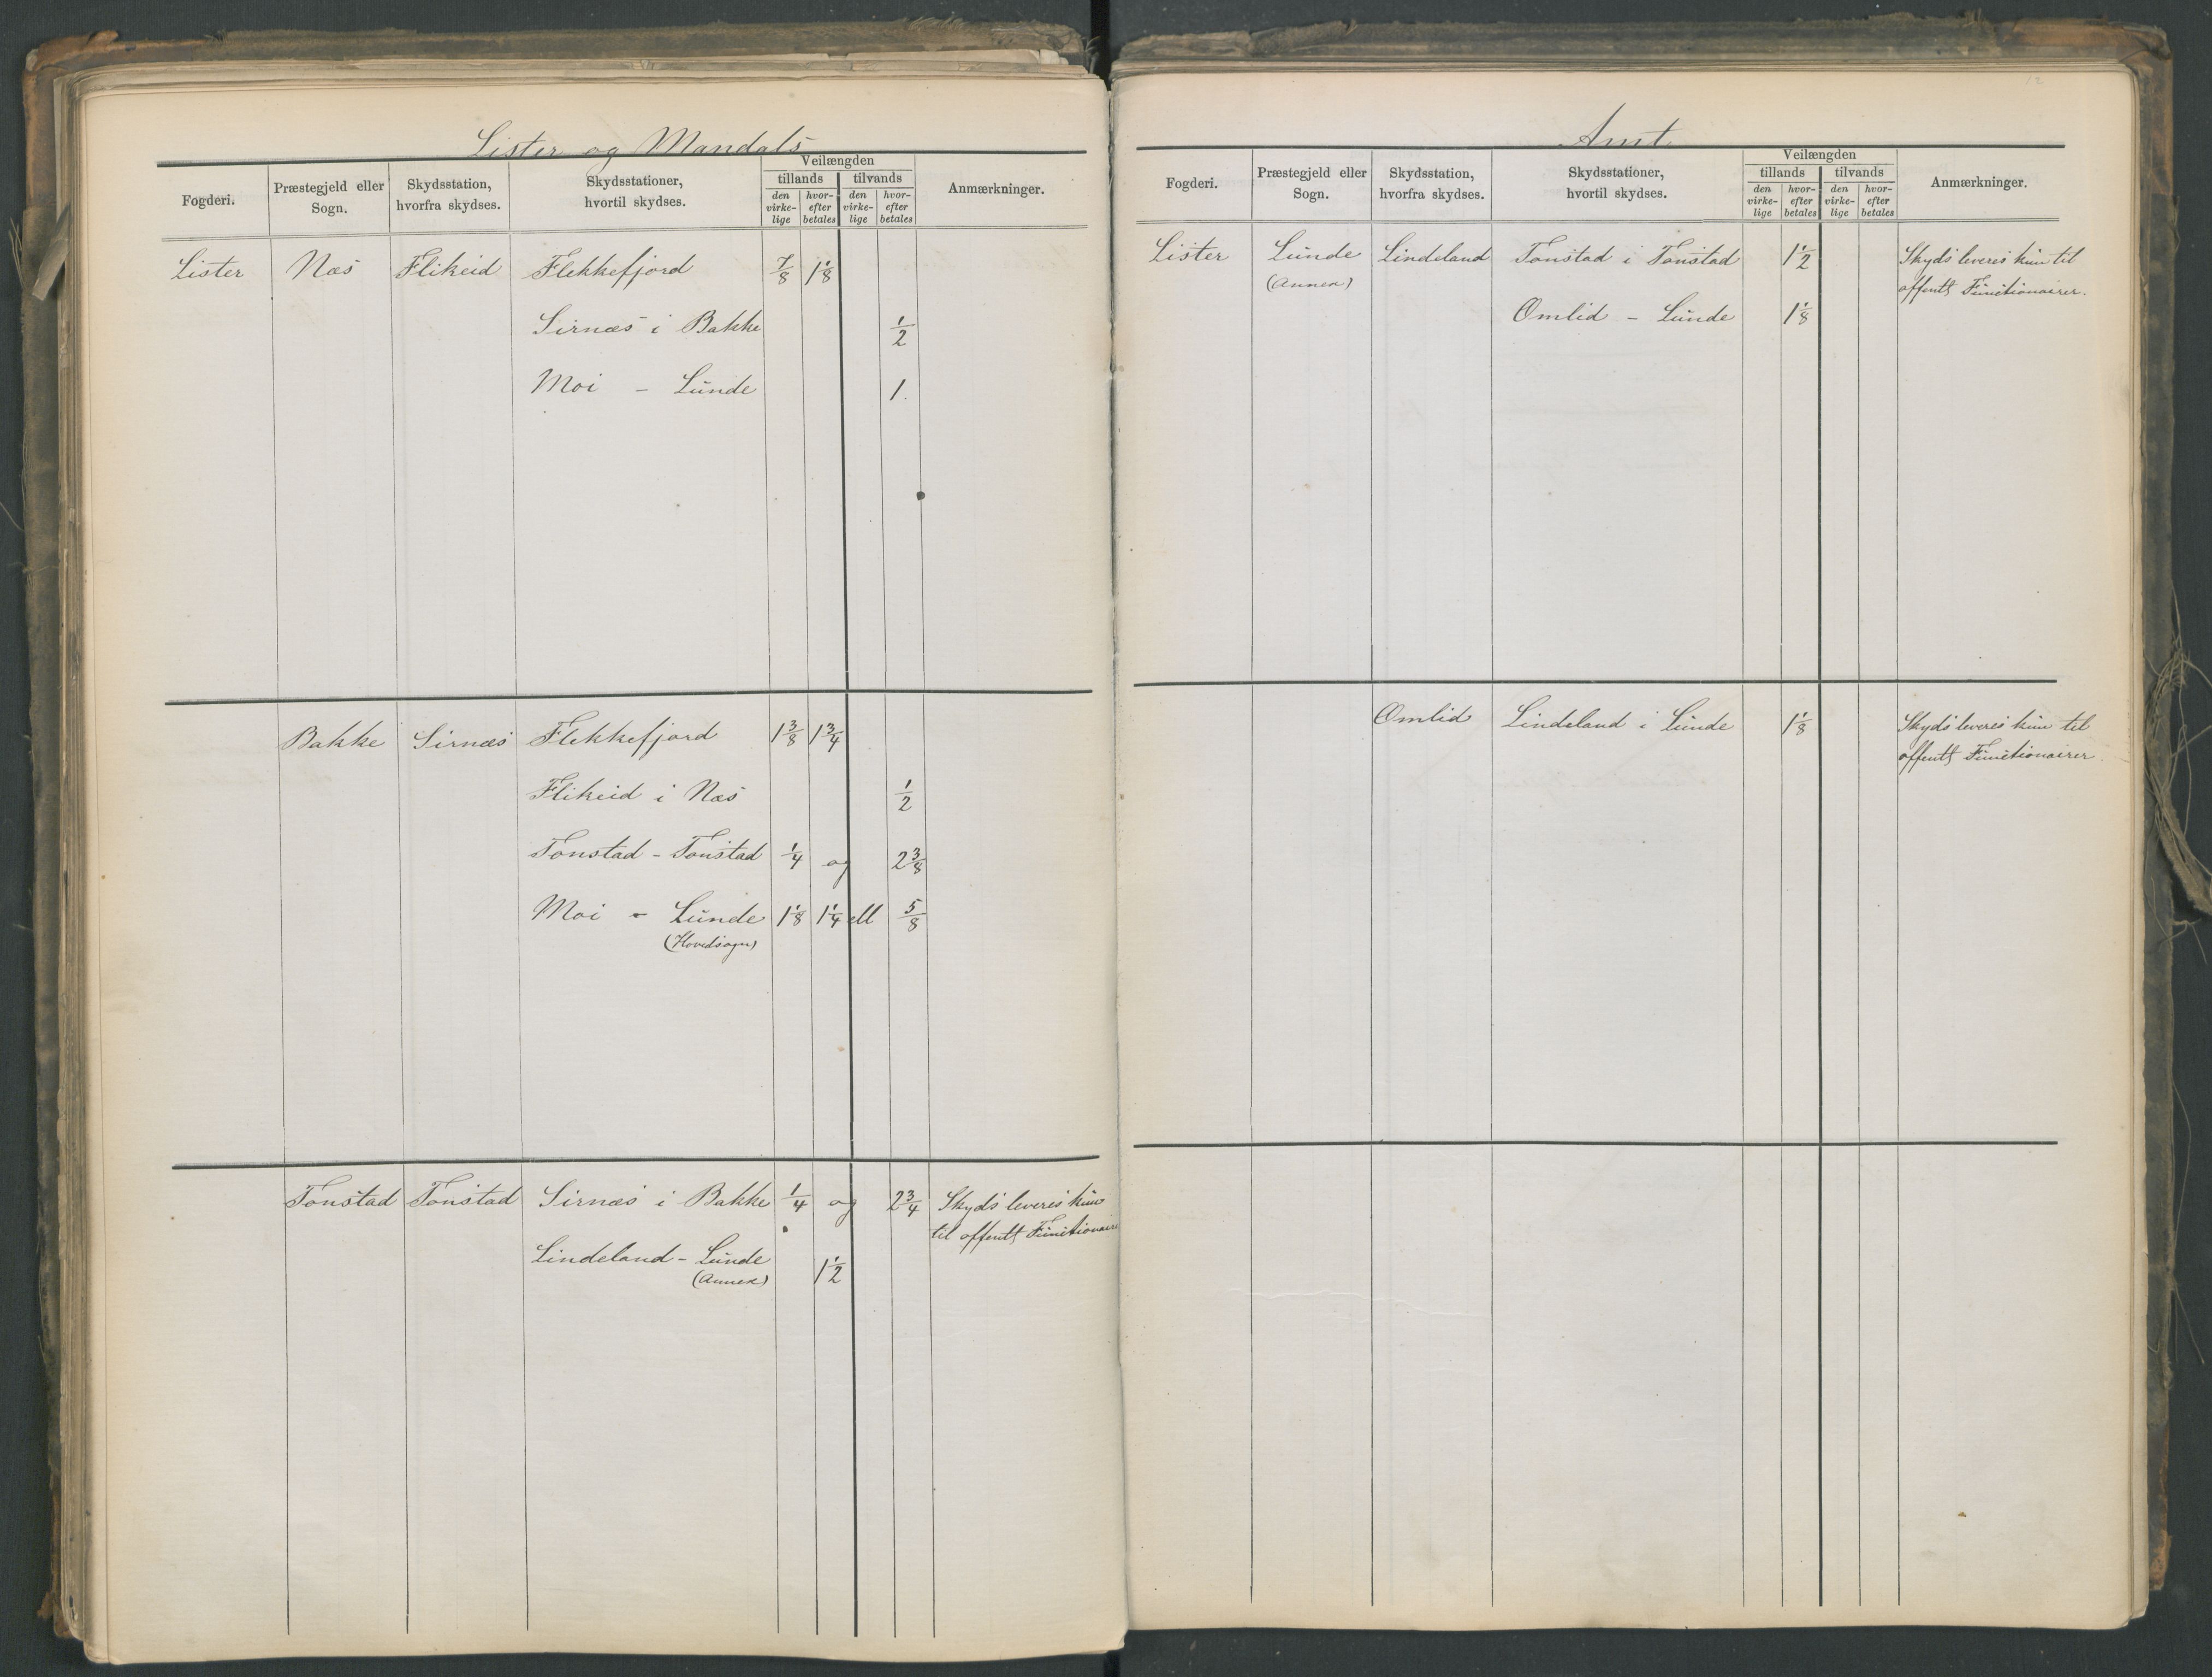 Lister og Mandals
Fogderi.
Præstegjeld eller
Sogn.
Skydsstation,
hvorfra skydses.
Skydsstationer,
hvortil skydses.
Veilængden
tillands tilvands
den virke- lige
hvor- efter betales
den virke- lige
hvor- efter betales
Anmærkninger.
Lister Næs Flikeid Flekkefjord 7/8 1 1/8
Sirnæs i Bakke 1/2
Moi - Lunde 1.
Bakke Sirnæs Flekkefjord 1 3/8 1 3/4
Flikeid i Næs 1/2
Tonstad - Tonstad 1/4 og 2 3/8
Moi - Lunde 1 1/8 1 1/4 ell 5/8
(Hovedsogn)
Tonstad Tonstad Sirnæs i Bakke 1/4 og 2 3/4 Skyds leveres kun
til offentl Functionaire
Lindeland - Lunde 1 1/2
(Annex)
12
Amt
Fogderi.
Præstegjeld eller
Sogn.
Skydsstation,
hvorfra skydses.
Skydsstationer,
hvortil skydses.
Veilængden
tillands tilvands
den virke- lige
hvor- efter betales
den virke- lige
hvor- efter betales
Anmærkninger.
Lister Lunde Lindeland Tonstad i Tonstad 1 1/2 Skyds leveres kun til
(Annex) offentl Functionairer.
Omlid - Lunde 1 1/8
Omlid Lindeland i Lunde 1 1/8 Skyds leveres kun til
offentl Functionairer.